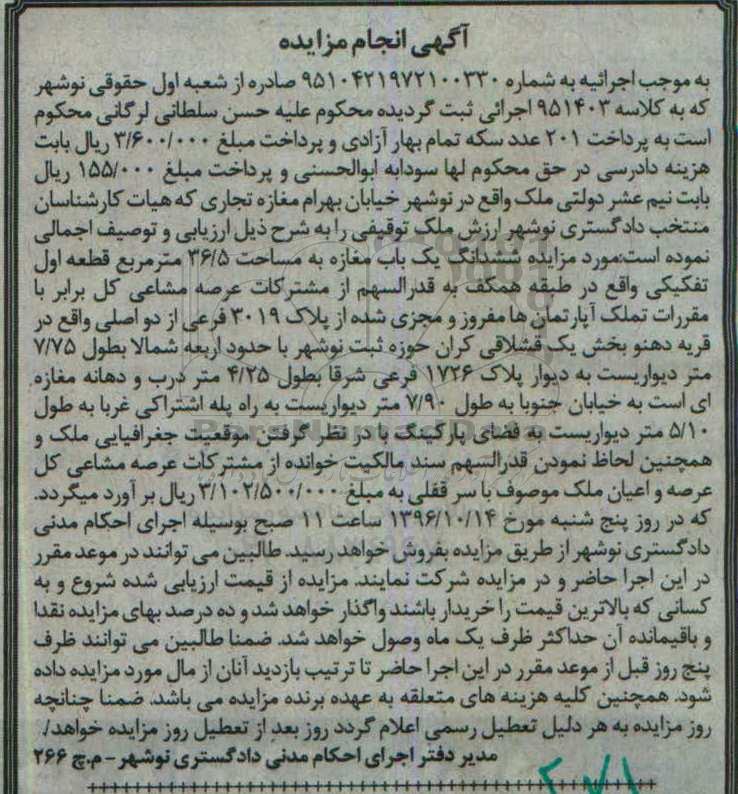 آگهی انجام مزایده
به موجب اجرائیه به شماره ۹۵۱۰۴۲۱۹۷۲۱۰۰۳۳۰ صادره از شعبه اول حقوقی نوشهر
که به کلاسه ۹۵۱۴۰۳ اجرائی ثبت گردیده محکوم علیه حسن سلطانی لرگانی محکوم
است به پرداخت ۲۰۱ عدد سکه تمام بهار آزادی و پرداخت مبلغ ۳/۶۰۰/۰۰۰ ریال بابت
هزینه دادرسی در حق محکوم لها سودابه ابوالحسنی و پرداخت مبلغ ۱۵۵/۰۰۰ ریال
بابت نیم عشر دولتی ملک واقع در نوشهر خیابان بهرام مغازه تجاری که هیات کارشناسان
منتخب دادگستری نوشهر ارزش ملک توقیفی را به شرح ذیل ارزیابی و توصیف اجمالی
نموده است:مورد مزایده ششدانگ یک باب مغازه به مساحت ۳۶/۵ مترمربع قطعه اول
تفکیکی واقع در طبقه همکف به قدرالسهم از مشترکات عرصه مشاعی کل برابر با
مقررات تملک آپارتمان ها مفروز و مجزی شده از پلاک ۳۰۱۹ فرعی از دو اصلی واقع در
قریه دهنو بخش یک قشلاقی کران حوزه ثبت نوشهر با حدود اربعه شمالا بطول ۷/۷۵
متر دیواریست به دیوار پلاک ۱۷۲۶ فرعی شرقا بطول ۴/۲۵ متر درب و دهانه مغازه
ای است به خیابان جنوبا به طول ۷/۹۰ متر دیواریست به راه پله اشتراکی غربا به طول
۵/۱۰ متر دیواریست به فضای پارکینگ با در نظر گرفتن موقعیت جغرافیایی ملک و
همچنین لحاظ نمودن قدرالسهم سند مالکیت خوانده از مشترکات عرصه مشاعی کل
عرصه و اعیان ملک موصوف با سر قفلی به مبلغ ۳/۱۰۲/۵۰۰/۰۰۰ ریال بر آورد میگردد.
که در روز پنج شنبه مورخ ۱۳۹۶/۱۰/۱۴ ساعت ۱۱ صبح بوسیله اجرای احکام مدنی
دادگستری نوشهر از طریق مزایده بفروش خواهد رسید. طالبین می توانند در موعد مقرر
در این اجرا حاضر و در مزایده شرکت نمایند. مزایده از قیمت ارزیابی شده شروع و به
کسانی که بالاترین قیمت را خریدار باشند واگذار خواهد شد و ده درصد بهای مزایده نقدا
و باقیمانده آن حداکثر ظرف یک ماه وصول خواهد شد. ضمنا طالبین می توانند ظرف
پنج روز قبل از موعد مقرر در این اجرا حاضر تا ترتیب بازدید آنان از مال مورد مزایده داده
شود. همچنین کلیه هزینه های متعلقه به عهده برنده مزایده می باشد. ضمنا چنانچه
روز مزایده به هر دلیل تعطیل رسمی اعلام گردد روز بعد از تعطیل روز مزایده خواهد/.
مدیر دفتر اجرای احکام مدنی دادگستری نوشهر - م.چ ۲۶۶